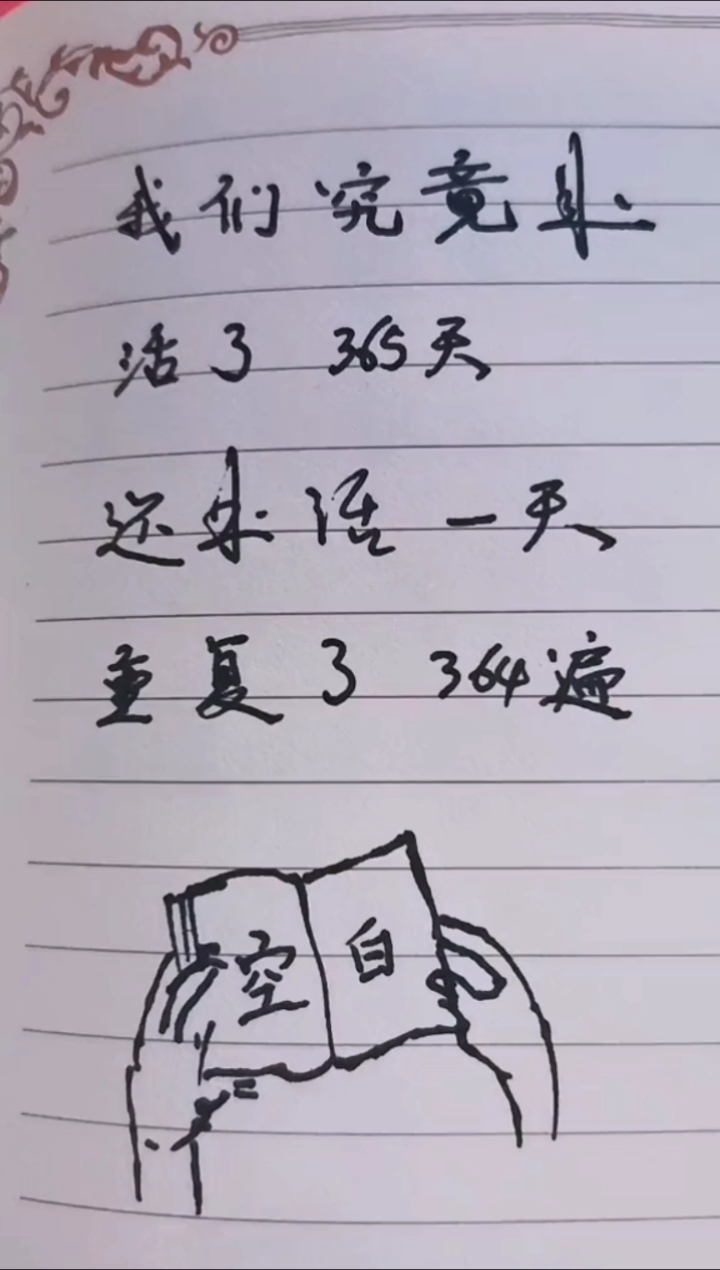 我们究竟是
活了 365天
还是活一天
重复了 364遍
空 白